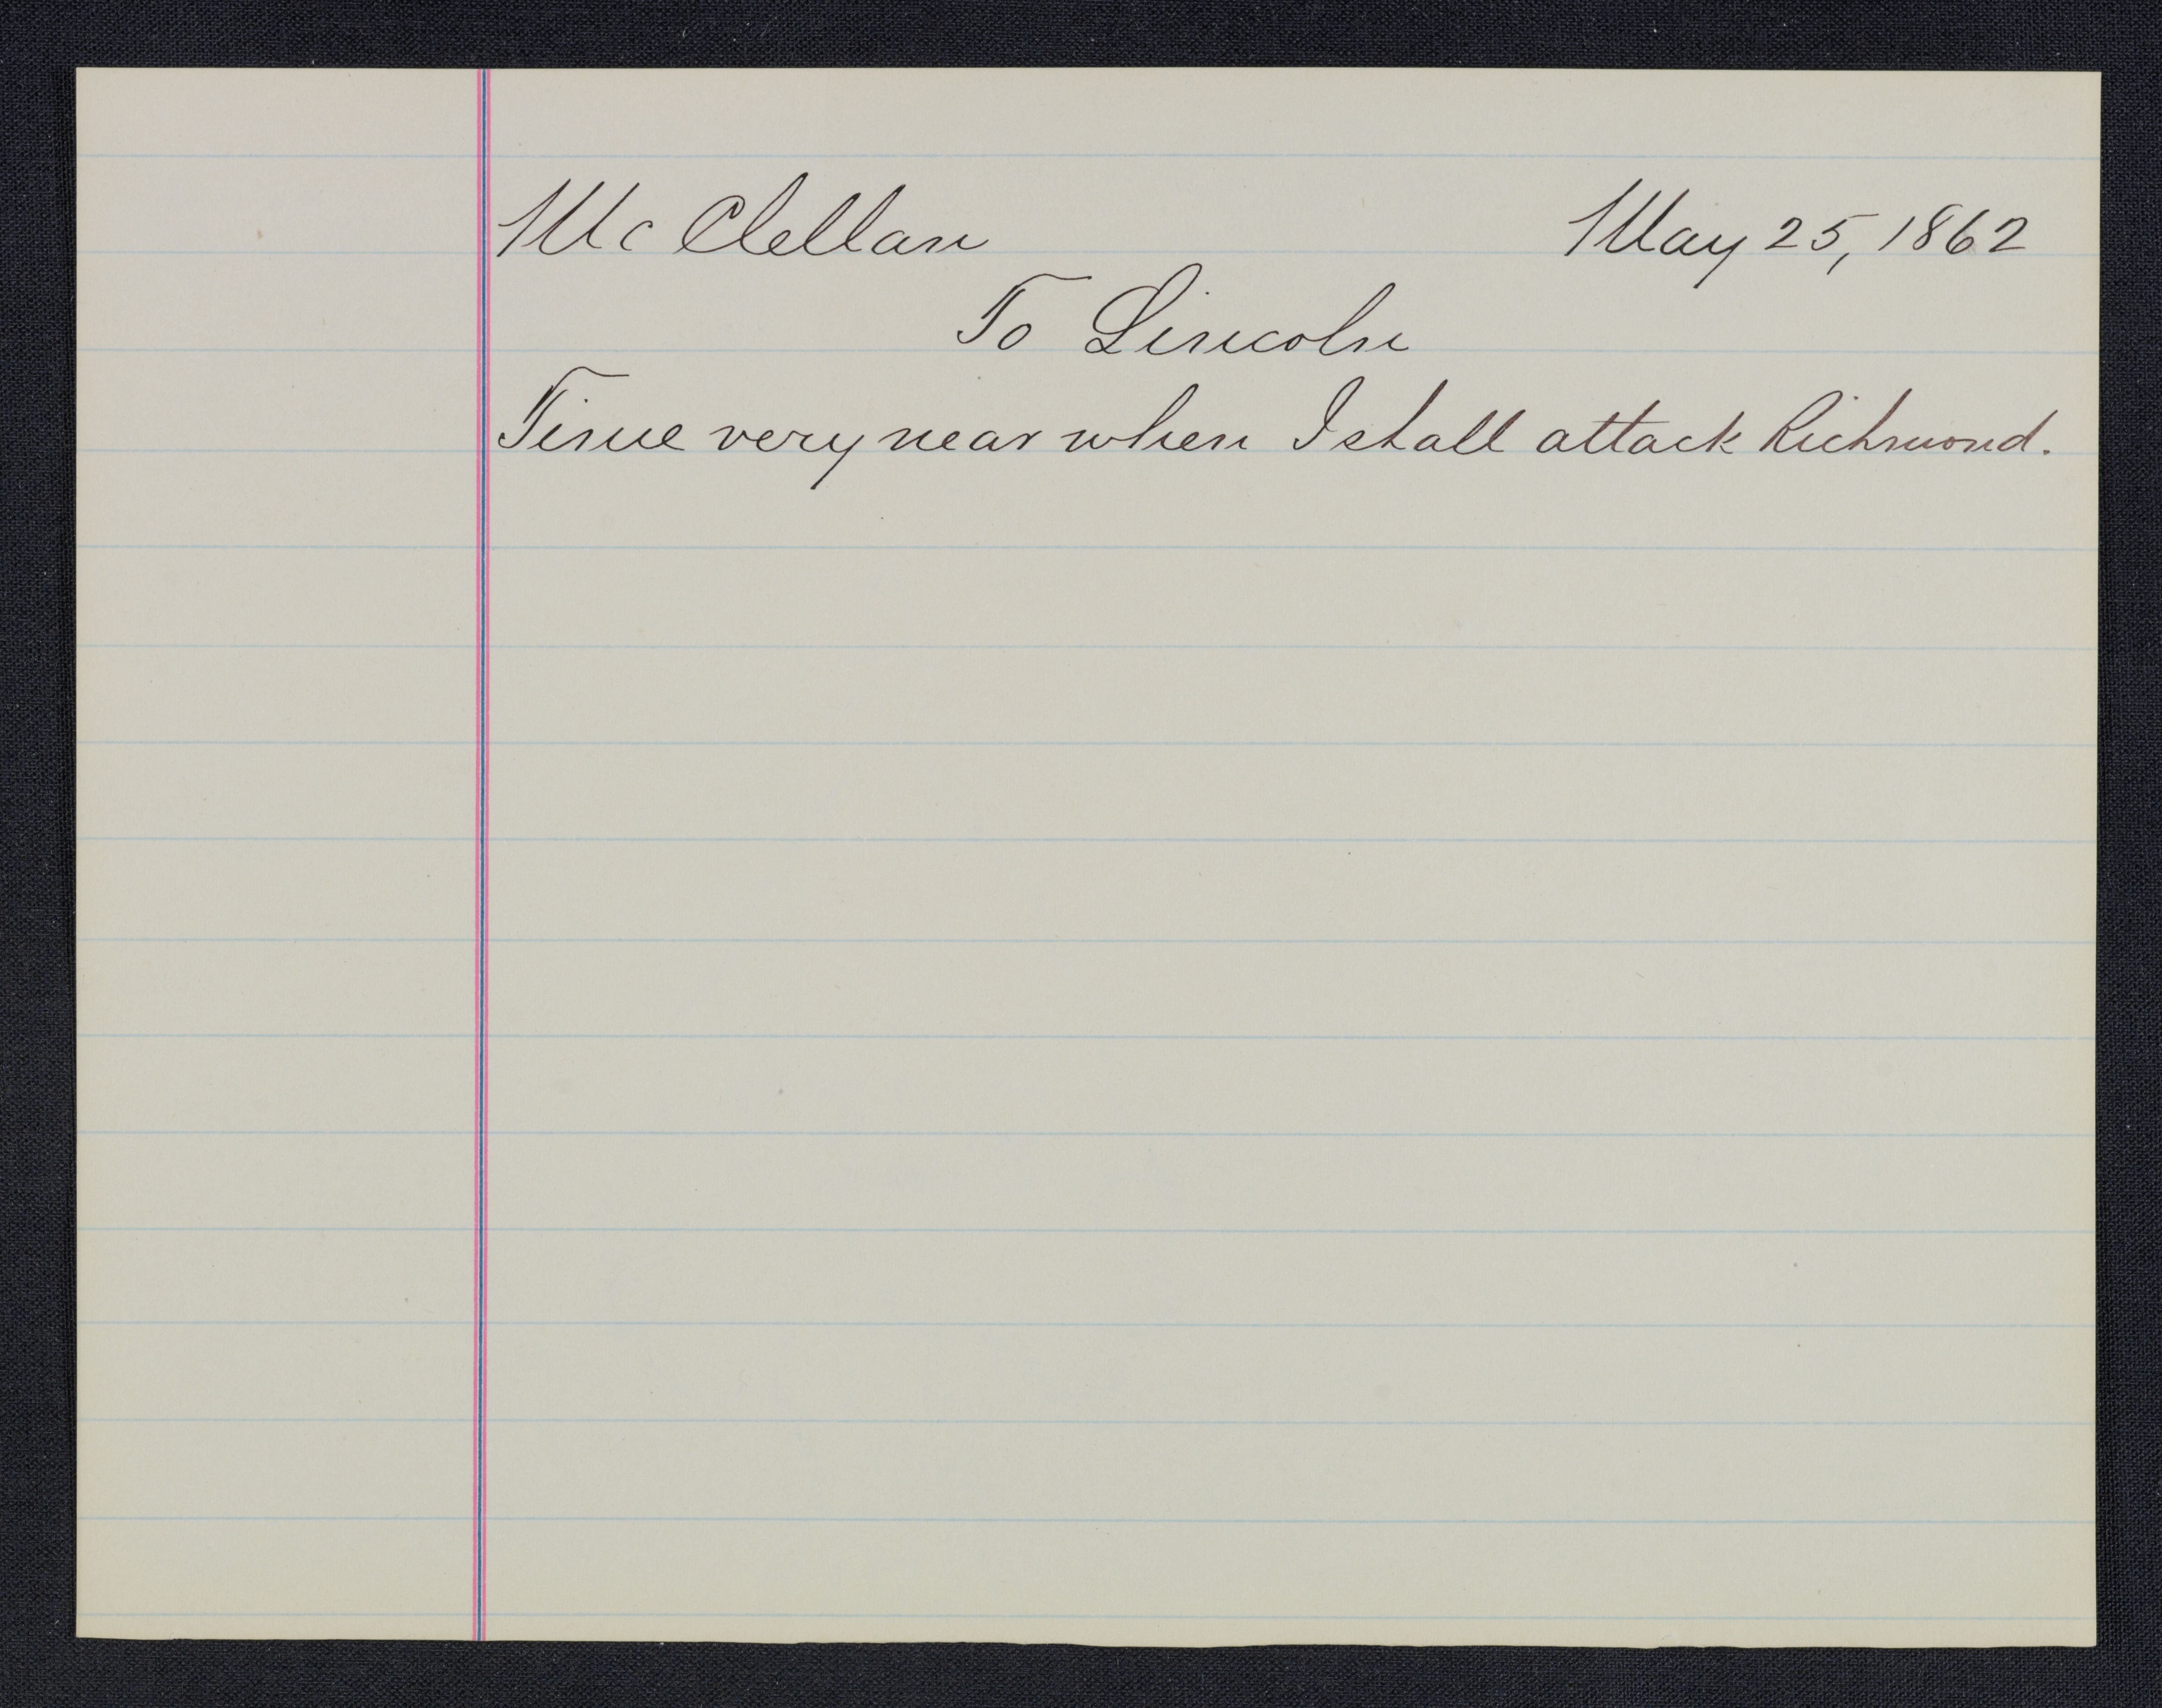 McClellan May 25, 1862
To Lincoln
Time very near when I shall attack Richmond.